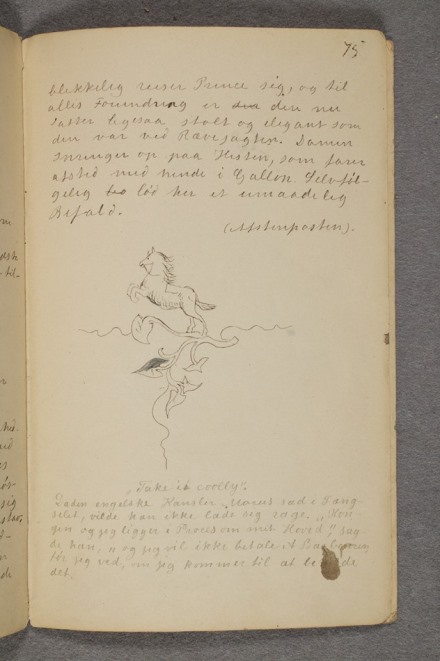 75
blikkelig reiser Prince sig, og til
alles Forundring er den nu
Latter ligesaa stolt og elegant som
den var ved Rævejagten. Damen
springer op paa Hesten, som farer
afsted med hende i Gallop. Selvføl-
gelig lød her et umaadelig
Bifald.
(Aftenposten).
"Take it coolly".
Da den engelske Kansler Morus sad i Fæng-
selet, vilde han ikke lade sig rage. "Kon-
gen og jeg ligger i Proces om mit Hoved", sag-
de han, "og jeg vil ikke betale
før jeg ved, om jeg kommer til at
det.